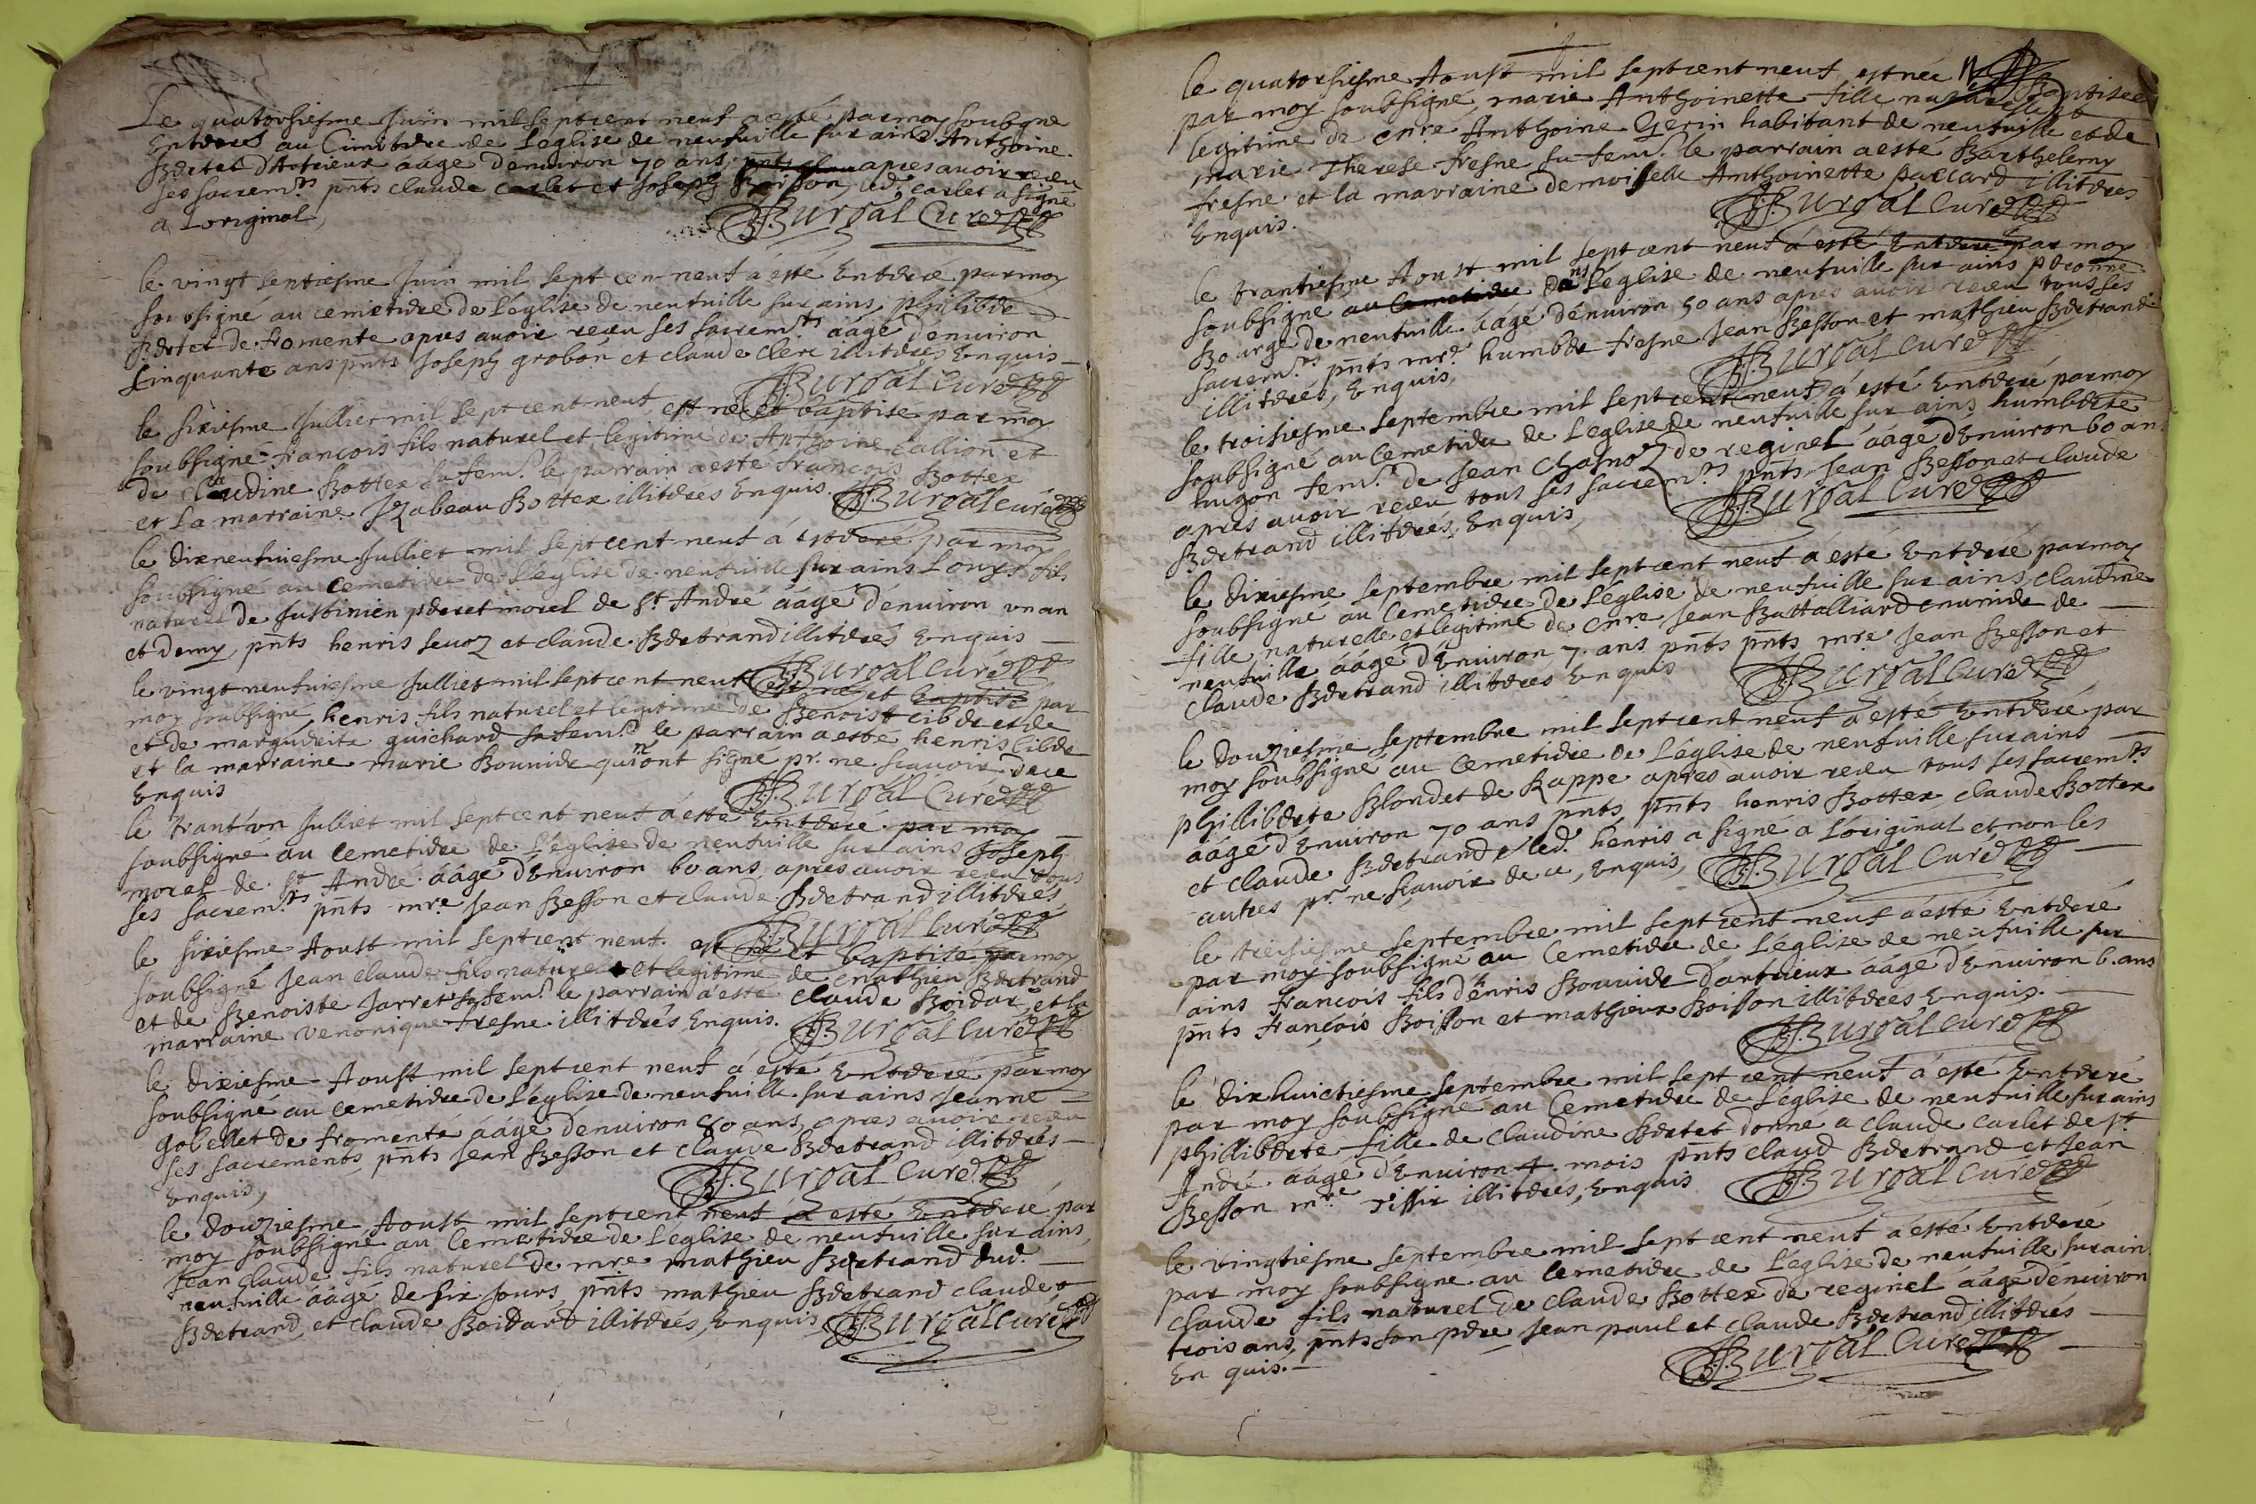 Le quatorsiesme Juin mil sept cent neuf a esté par moy soubsigne
Enterré au Cimitiere de L'eglise de neufuille sur ains Anthoine
Bertet d'Artrieux aagé d'enuiron 70 ans apres avoir receu
ses sacrem.ts pnts claude carlet et Joseph Boisson, led. carlet a signé
a L'original,
Burgal Curé
le vingt septiesme Juin mil sept cen neuf a esté Enterré par moy
soubsigné au cemetiere de L'eglise de neufuille sur ains, philiberte
Bertet de fromente apres auoir receu ses sacrem.ts aagé d'enuiron
Cinquante ans pnts Joseph grobon et claude clerc illiterés Enquis
Burgal Curé
le sixiesme Julliet mil sept cent neuf est né et baptisé par moy
soubsigné francois fils naturel et legitime de Anthoine callion et
de claudine Bottex sa fem.e le parrain a esté francois Bottex
et La marraine Izabeau Bottex illiterés Enquis. Burgal curé
le dixneufuiesme Julliet mil sept cent neuf a enterré par moy
soubsigné au cemetiere de L'eglise de neufuille sur ains Louys fils
naturel de Justinien perret morel de St André aagé d'enuiron un an
et demy, pnts henris seuoz et claude Bertrand illiterés Enquis
Burgal Curé
le vingt neufuiesme Julliet mil sept cent neuf est né et baptisé par
moy soubsigné, henris fils naturel et legitime de Benoist cibert et de
et de marguerite guichard sa fem.e le parrain a esté henris cibert
et la marraine marie Bouuier qui n'ont signé pr. ne scauoir de ce
Enquis
Burgal Curé
le trant'un Julliet mil sept cent neuf a esté Enterré par moy
soubsigné au cemetiere de L'eglise de neufuille sur ains Joseph
morel de St André aagé d'Enuiron 60 ans, apres auoir receu tous
ses sacrem.ts pnts mre Jean Besson et claude Bertrand illiterés
Burgal Curé
le sixiesme Aoust mil sept cent neuf. est né et baptisé par moy
soubsigné Jean claude fils naturel et legitime de mathieu Bertrand
et de Benoiste Jarret sa fem.e le parrain a esté claude Boidar et la
marraine Veronique fresne illiterés Enquis. Burgal Curé
le dixiesme Aoust mil sept cent neuf a esté Enterré par moy
soubsigné au cemetiere de L'eglize de neufuille sur ains Jeanne
gobellet de fromente aagé d'enuiron 80 ans, apres auoir receu
ses sacrements pnts Jean Besson et claude Bertrand illiterés
Enquis,
Burgal Curé
le douziesme Aoust mil sept cent neuf a esté Enterré par
moy soubsigné au Cemetiere de L'eglise de neufuille sur ains
Jean claude fils naturel de mre mathieu Bertrand dud.
neufuille aagé de six Jours, pnts mathieu Bertrand claude
Bertrand, et claude Boidard illiterés, Enquis Burgal Curé
le quatorsiesme Aoust mil sept cent neuf est née et Baptisée
par moy soubsigné, marie Anthoinette fille naturelle et
legitime de mre Anthoine Gerin habitant de neufuille et de
marie Therese fresne sa fem.e le parrain a esté Barthelemy
fresne et la marraine demoiselle Anthoinette paccard illiterés
Enquis.
Burgal Curé
le trantiesme Aoust mil sept cent neuf a esté Enterré par moy
soubsigné au Cemetiere dans L'eglise de neufuille sur ains pieronne
Bourge de neufuille aagé d'enuiron 50 ans apres auoir receu tous ses
sacrem.ts pnts mre humbert fresne Jean Besson et mathieu Bertrand
illiterés, Enquis,
Burgal Curé
le troisiesme septembre mil sept cent neuf a esté Enterré par moy
soubsigné au Cemetiere de L'eglise de neufuille sur ains humberte
hugon fem.e de Jean Chanoz de reginel aagé d'Enuiron 60 ans
apres auoir receu tous ses sacrem.ts pnts Jean Besson et claude
Bertrand illiterés, Enquis,
Burgal Curé
le dixiesme septembre mil sept cent neuf a esté Enterré par moy
soubsigné au Cemetiere de L'eglise de neufuille sur ains, claudine
fille naturelle et legitime de mre Jean Battalliard de
neufuille aagé d'Enuiron 7 ans pnts pnts mre Jean Besson et
claude Bertrand illiterés Enquis
Burgal Curé
le douziesme septembre mil sept cent neuf a esté Enterré par
moy soubsigné au Cemetiere de L'eglise de neufuille sur ains
phillibertе Blondet de Rappe apres auoir receu tous ses sacrem.ts
aagé d'Enuiron 70 ans pnts pnts henris Bottex, claude Bottex
et claude Bertrand led. henris a signé a L'original et non les
autres pr. ne scauoir de ce, Enquis,
Burgal Curé
le treisiesme septembre mil sept cent neuf a esté Enterré
par moy soubsigné au Cemetiere de L'eglize de neufuille sur
ains francois fils d'henris Bouuier d'artrieux aagé d'Enuiron 6. ans
pnts francois Boisson et mathieu Boisson illiterés Enquis.
Burgal Curé
le dixhuictiesme septembre mil sept cent neuf a esté Enterré
par moy soubsigné au Cemetiere de L'eglise de neufuille sur ains
phillibertе fille de claudine Bertet donné a claude carlet de St
André aagé d'Enuiron 4. mois pnts claud Bertrand et Jean
Besson mre tissir illiterés, Enquis
Burgal Curé
le vingtiesme septembre mil sept cent neuf a esté Enterré
par moy soubsigné au Cemetiere de L'eglise de neufuille sur ain
claude fils naturel de claude Bottex de reginel aagé d'enuiron
trois ans, pnts son pere Jean paul et claude Bertrand illiterés
En quis.
Burgal Curé